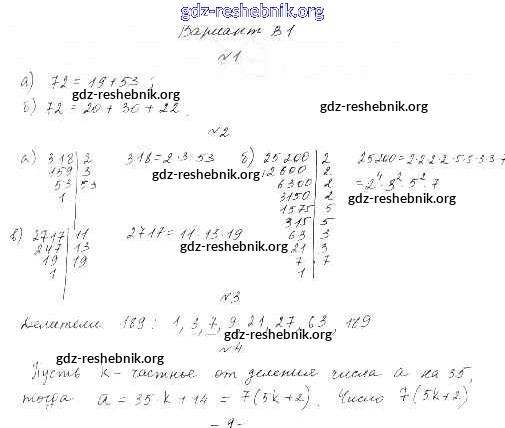 gdz-reshebnik.org
Вариант В1
№1
а) 72 = 19 + 53 ;
gdz-reshebnik.org
б) 72 = 20 + 30 + 22.
gdz-reshebnik.org
№2
а) 318 | 2
159 | 3
53 | 53
1 |
318 = 2·3·53
gdz-reshebnik.org
б) 25200 | 2
12600 | 2
6300 | 2
3150 | 2
1575 | 5
315 | 5
63 | 3
21 | 3
7 | 7
1 |
25200 = 2·2·2·2·5·5·3·3·7
= 2⁴·3²·5²·7
gdz-reshebnik.org
в) 2717 | 11
247 | 13
19 | 19
1 |
2717 = 11·13·19
gdz-reshebnik.org
№3
Делители 189: 1, 3, 7, 9, 21, 27, 63, 189
gdz-reshebnik.org
№4
gdz-reshebnik.org
Пусть k – частное от деления числа а на 35,
тогда а = 35·k + 14 = 7(5k+2). Число 7(5k+2)
- 9 -